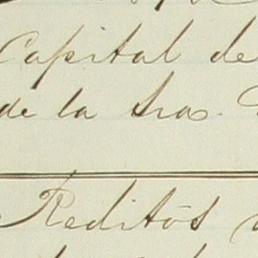 Capital de
de la Sras.
Reditos